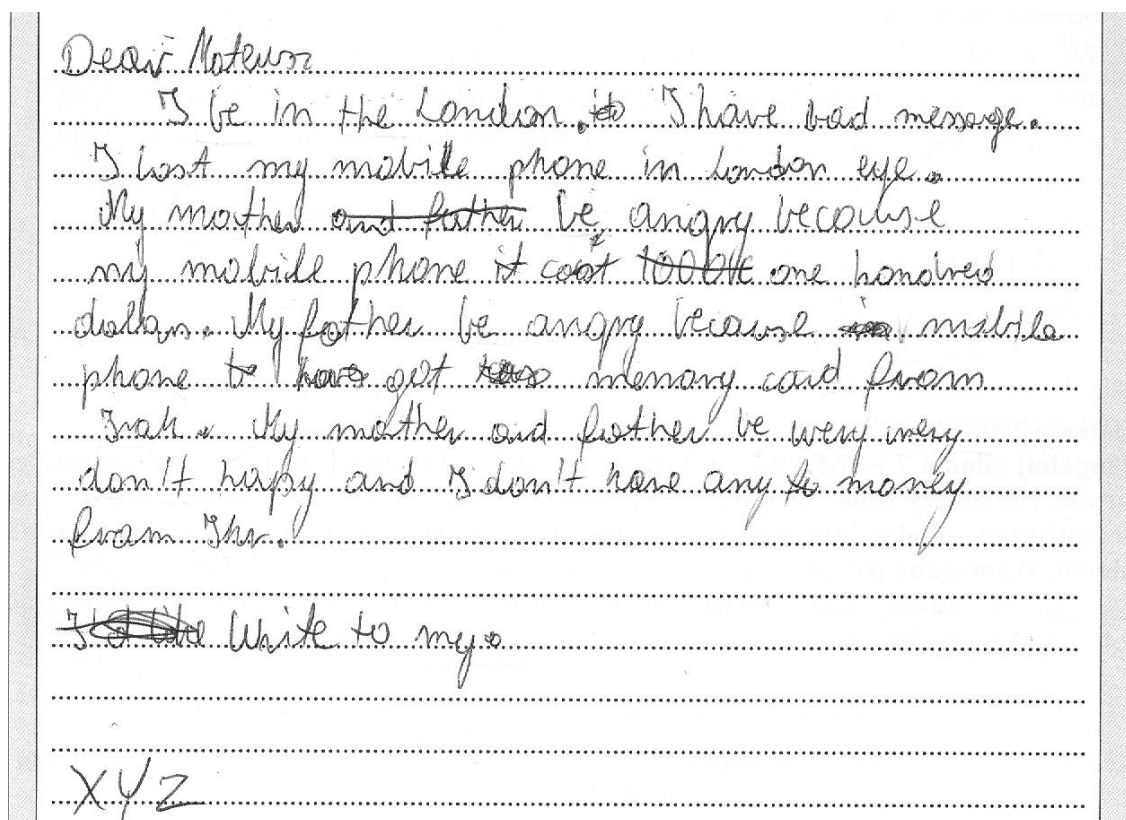 Dear Mateusz
I be in the London. I have bad message.
I lost my mobile phone in London eye.
My mother and father be angry becouse
my mobile phone it cost 1000 one hondred
dollars. My father be angry becouse mobile
phone have got memory card from
Irak. My mother and father be wery wery
don't happy and I don't have any to money
from
I Write to my.
XYZ